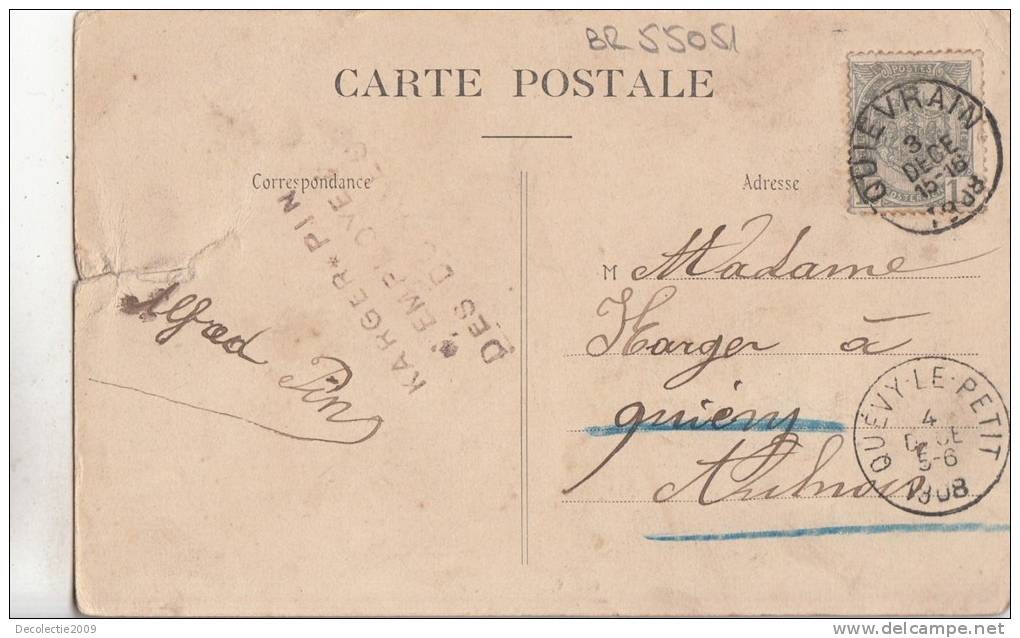 BR 55051
CARTE POSTALE
POSTES
QUIEVRAIN
3
DECE
15-16
1908
1
Correspondance
Adresse
KARGER*PIN
EMPLOYE
DES D
Alfred
Pin
M Madame
Karger à
quiévy
Aulnois
QUÉVY-LE-PETIT
4
DECE
5-6
1908
Decolectie2009
delcampe.net